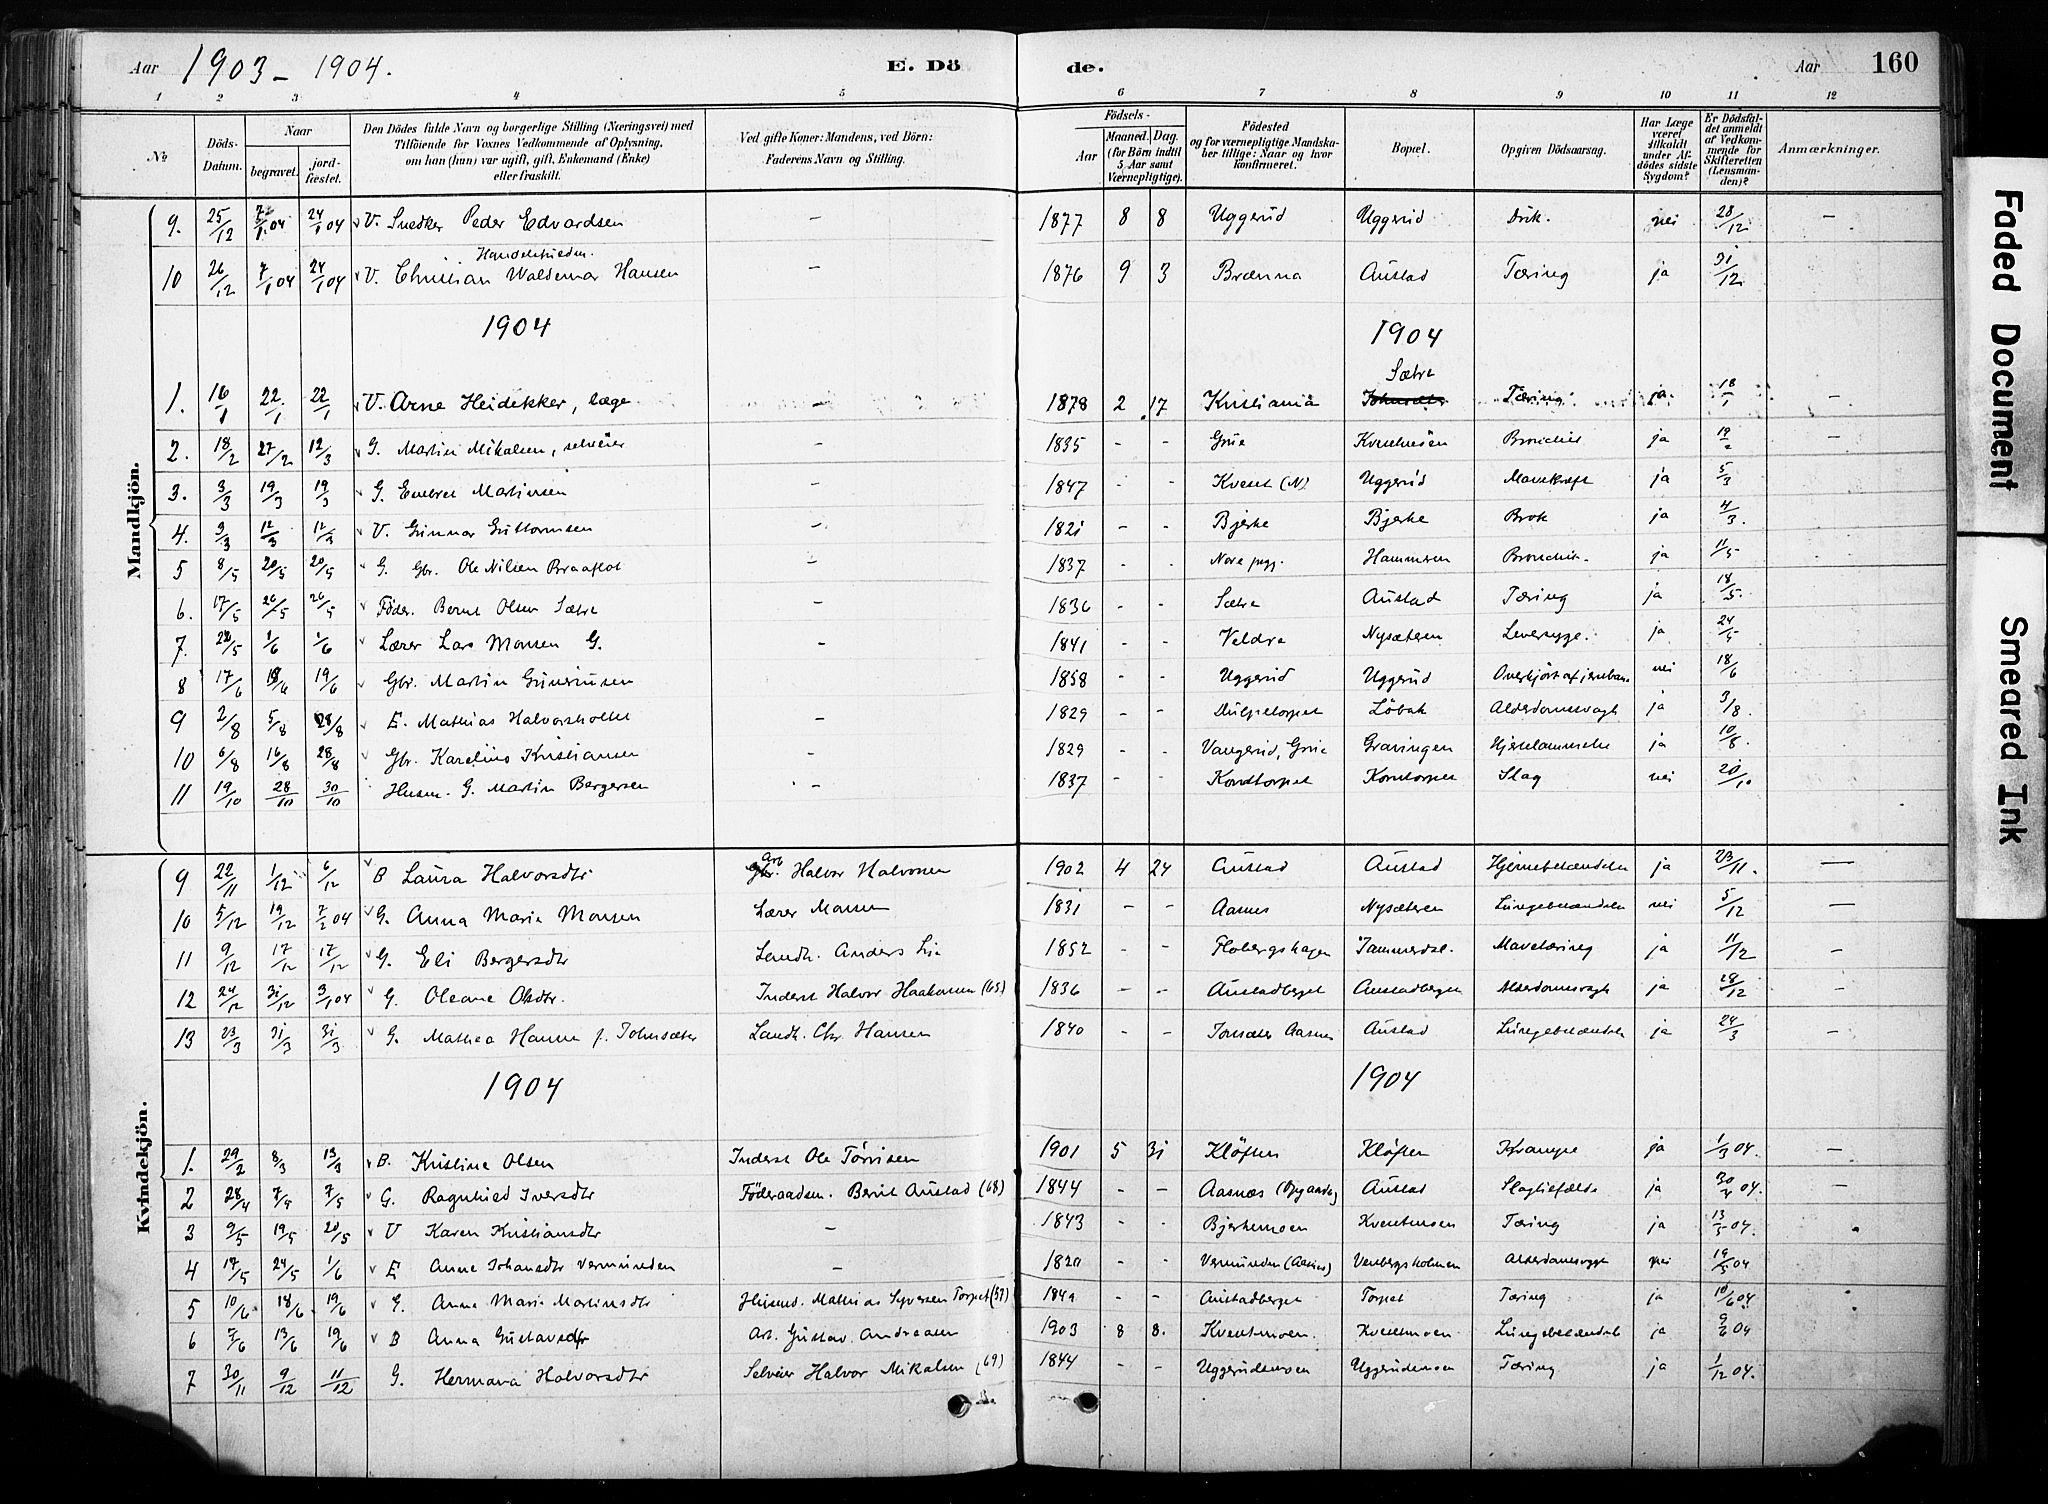 Aar 1903 - 1904. E. Dö de. Aar 160
1 2 3 4 5 6 7 8 9 10 11 12
No Döds-Datum. Naar begravet. jordfæstet. Den Dödes fulde Navn og borgerlige Stilling (Næringsvei) med Tilföiende for Voxnes Vedkommende af Oplysning, om han (hun) var ugift, gift, Enkemand (Enke) eller fraskilt. Ved gifte Koner: Mandens, ved Börn: Faderens Navn og Stilling. Födsels- Aar Maaned. Dag. (for Börn indtil 5 Aar samt Værnepligtige). Födested og for værnepligtige Mandskaber tillige: Naar og hvor konfirmeret. Bopæl. Opgiven Dödsaarsag. Har Læge været tilkaldt under Afdödes sidste Sygdom? Er Dödsfaldet anmeldt af Vedkommende for Skifteretten (Lensmanden)? Anmærkninger.
Mandkjön.
9. 25/12 7/1 04 24/1 04 V. Snedker Peder Edvardsen - 1877 8 8 Uggerud Uggerud Druk. nei 28/12 -
Handelsbetien.
10 26/12 7/1 04 24/1 04 V. Christian Waldemar Hansen - 1876 9 3 Brænna Austad Tæring ja 31/12 -
1904 1904
Sætre
1. 16/1 22/1 22/1 V. Arne Heidekker, læge - 1878 2 17 Kristiania Tæring ja 18/1 -
2. 18/2 27/2 12/3 G. Martin Mikalsen, selveier - 1835 - - Grue Kventmoen Bronchit ja 19/2 -
3. 3/3 19/3 19/3 G. Embret Martinsen - 1847 - - Kveset (N) Uggerud Mavekræft ja 5/3
4. 3/3 12/3 12/3 V. Gunnar Guttormsen - 1821 - - Bjerke Bjerke Brok ja 4/3.
5 8/5 20/5 20/5 G. Gbr. Ole Nilsen Braaflot - 1837 - - Nore pgj. Hammeren Bronchit. ja 11/5
6. 17/5 26/5 26/5 Föder. Bernt Olsen Sætre - 1836 - - Sætre Austad Tæring ja 18/5.
7. 22/5 1/6 1/6 Lærer Lars Monsen G. - 1841 - - Veldre Nysæteren Leversyge. ja 24/5
8 17/6 18/6 19/6 Gbr. Martin Guneriusen 1858 - - Uggerud Uggerud Overkjört af jernban. nei 18/6
9 2/8 5/8 28/8 E. Mathias Halvorsholtet - 1829 - - Dulpetorpet Löbak Alderdomssvagh ja 3/8.
10 6/8 16/8 28/8 Gbr. Karelius Kristiansen - 1829 - - Vangerud, Grue Gravingen Hjertelammelse ja 10/8.
11 19/10 28/10 30/10 Husm. G. Martin Bergersen - 1837 - - Korntorpet Korntorpet Slag nei 20/10
Kvindekjön.
9 22/11 1/12 6/12 B Laura Halvorsdtr Arb Halvor Halvorsen 1902 4 24 Austad Austad Hjernebetændelse ja 23/11. -
10 5/12 19/12 7/2 04 G. Anna Maria Monsen Lærer Monsen 1831 - - Aasnes Nysæteren Lungebetændelse nei 5/12 -
11 9/12 17/12 17/12 G. Eli Bergersdtr Landh. Anders Lie 1852 - - Flobergshagen Tammerdal. Mavetæring ja 11/12 -
12 24/12 31/12 3/1 04 G. Oleane Olsdtr. Inderst Halvor Haakonsen (65) 1836 - - Austadberget Austadberget Alderdomssvagh ja 28/12 -
13 23/3 31/3 31/3 G. Mathea Hansen f. Johnsæter Landh. Chr Hansen 1840 - - Jonsæter Aasnes Austad Lungebetændelse ja 24/3 -
1904 1904
1. 29/2 8/3 13/3 B. Kristine Olsen Inderst Ole Törrisen 1901 5 31 Klöften Klöften Krampe ja 1/3 04. -
2 28/4 7/5 7/5 G. Ragnhild Iversdtr Föderaadsm. Bernt Austad (68) 1844 - - Aasnæs (Opgaarden) Austad Slagtilfælde ja 30/4 04. -
3 9/5 19/5 20/5 U Karen Kristiansdtr - 1843 - - Bjerkemoen Kventmoen Tæring ja 13/5 04.
4 17/5 24/5 1/6 E Anne Johansdtr Vermunden - 1820 - - Vermunden (Aasnes) Venbergsholmen Alderdomssvagh nei 19/5 04
5 10/6 18/6 19/6 G. Anna Maria Martinsdtr Husmd. Mathias Syversen Torpet (37) 1849 - - Austadberget Torpet Tæring ja 10/6 04.
6 5/6 13/6 19/6 B Anna Gustavsdtr Arb. Gustav Andreasen 1903 8 8. Kventmoen. Kventmoen Lungebetændelse ja 9/6 04
7 30/11 9/12 11/12 G. Hermana Halvorsdtr Selveier Halvor Mikalsen (69) 1844 - - Uggerudsmoen Uggerudsmoen Tæring ja 1/12 04. -
Faded Document
Smeared Ink